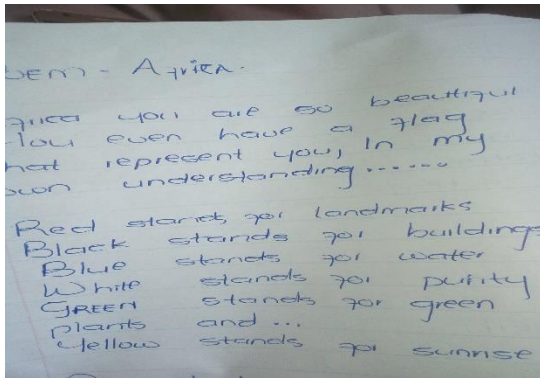 oem - Africa.
frica you are so beautiful
You even have a flag
hat represent you, In my
own understanding......
Red stands for landmarks
Black stands for buildings
Blue stands for water
White stands for purity
GREEN stands for green
plants and ...
Yellow stands for sunrise